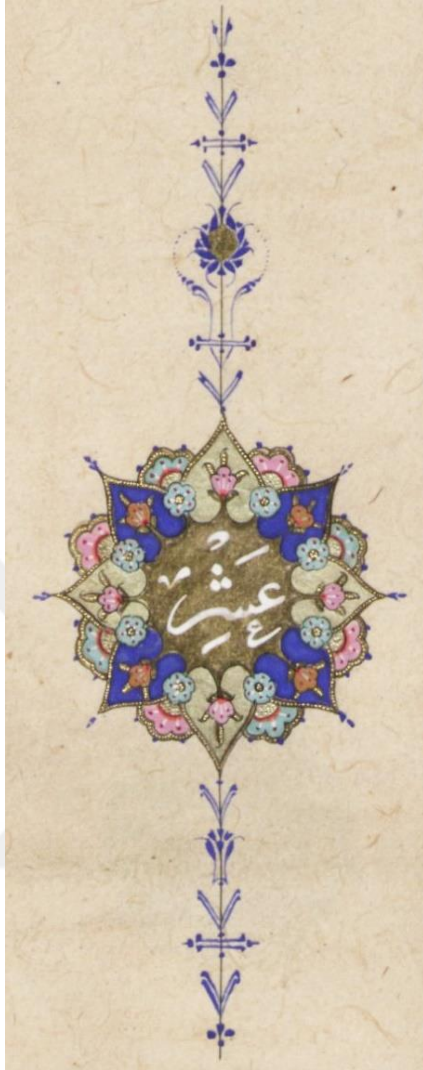 عَشِر